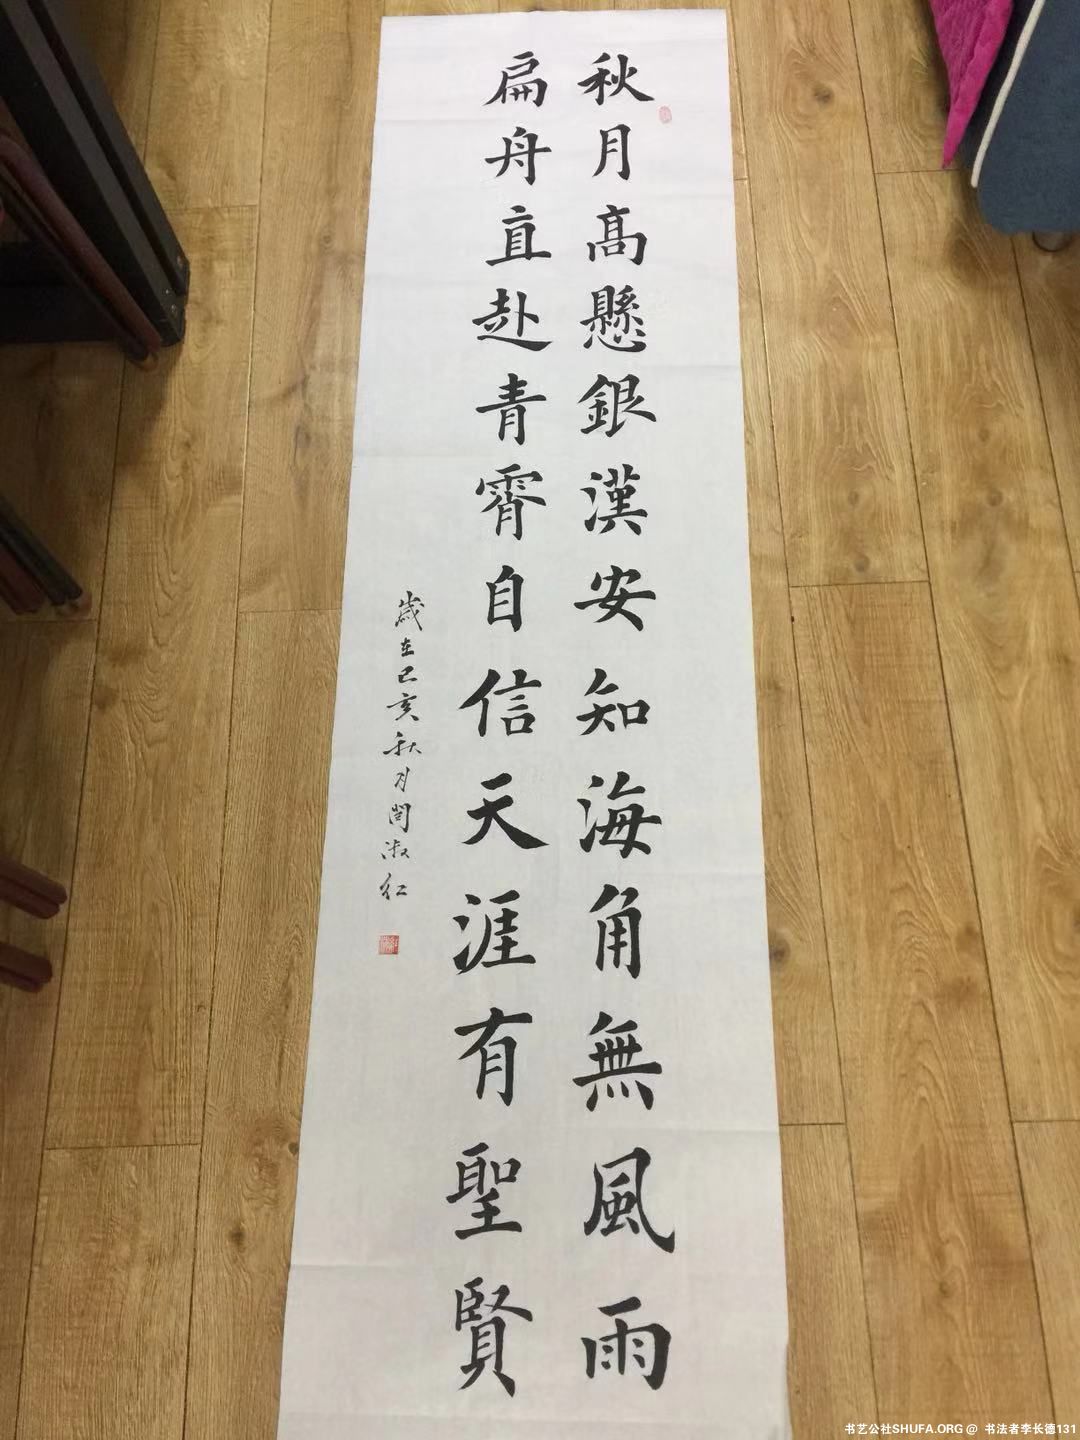 秋月高懸銀漢安知海角無風雨
扁舟直赴青霄自信天涯有聖賢
歲在己亥秋月闫淑红
书艺公社SHUFA.ORG @ 书法者李长德131